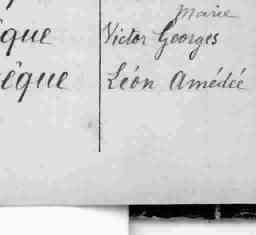 Marie
ique Victor Georges
êque Léon Amédée